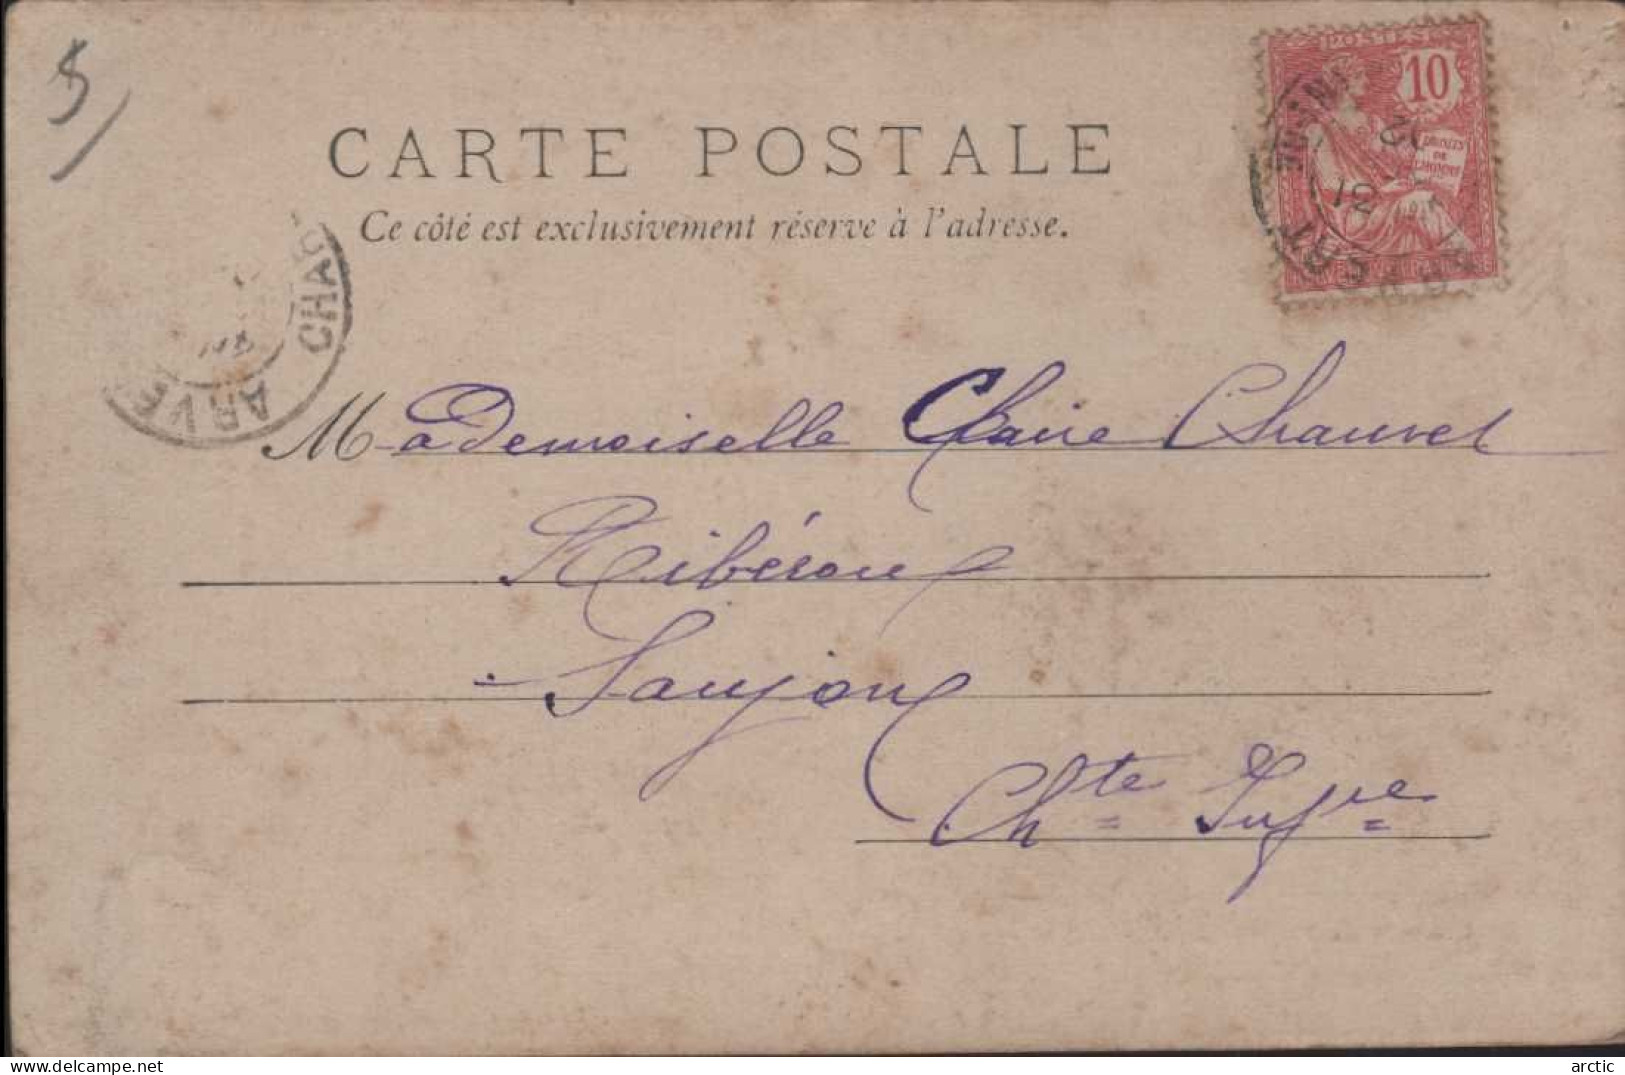 5
CARTE POSTALE
Ce côté est exclusivement réservé à l'adresse.
10
DROITS
DE
L'HOMME
31
CHAC
ARVE
Mademoiselle Claire Chauvet
Ribérou
Saujon
Chte Infre
arctic